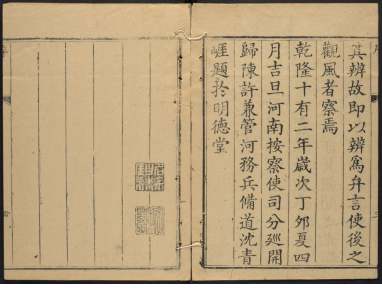 其辨故即以辨爲弁言使後之
觀風者察焉
乾隆十有二年歲次丁夘夏四
月吉旦河南按察使司分廵開
歸陳許兼管河務兵備道沈青
崕題於明德堂